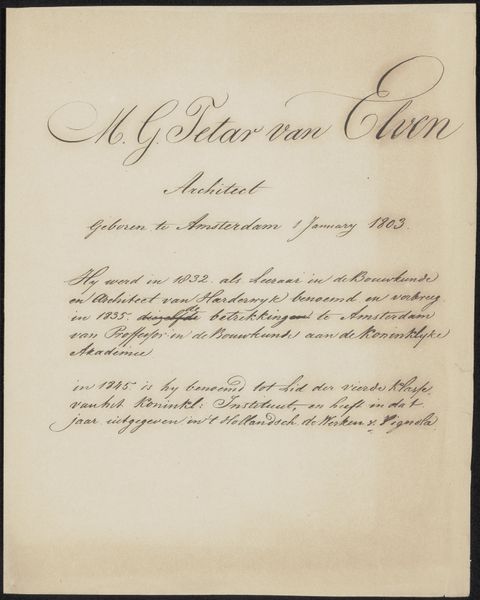 M. G. Tetar van Elven
Architect
Geboren te Amsterdam 1 January 1803.
Hy werd in 1832 als Leeraar in de Bouwkunde
en Architect van Harderwyk benoemd en verkreeg
in 1835 de betrekking te Amsterdam
van Proffessor in de Bouwkunde aan de Koninklyke
Akademie
in 1845 is hy benoemd tot Lid der vierde Klasse
van het Koninkl: Instituut, en heeft in dat
jaar uitgegeven in 't Hollandsch de Werken v. Vignola.